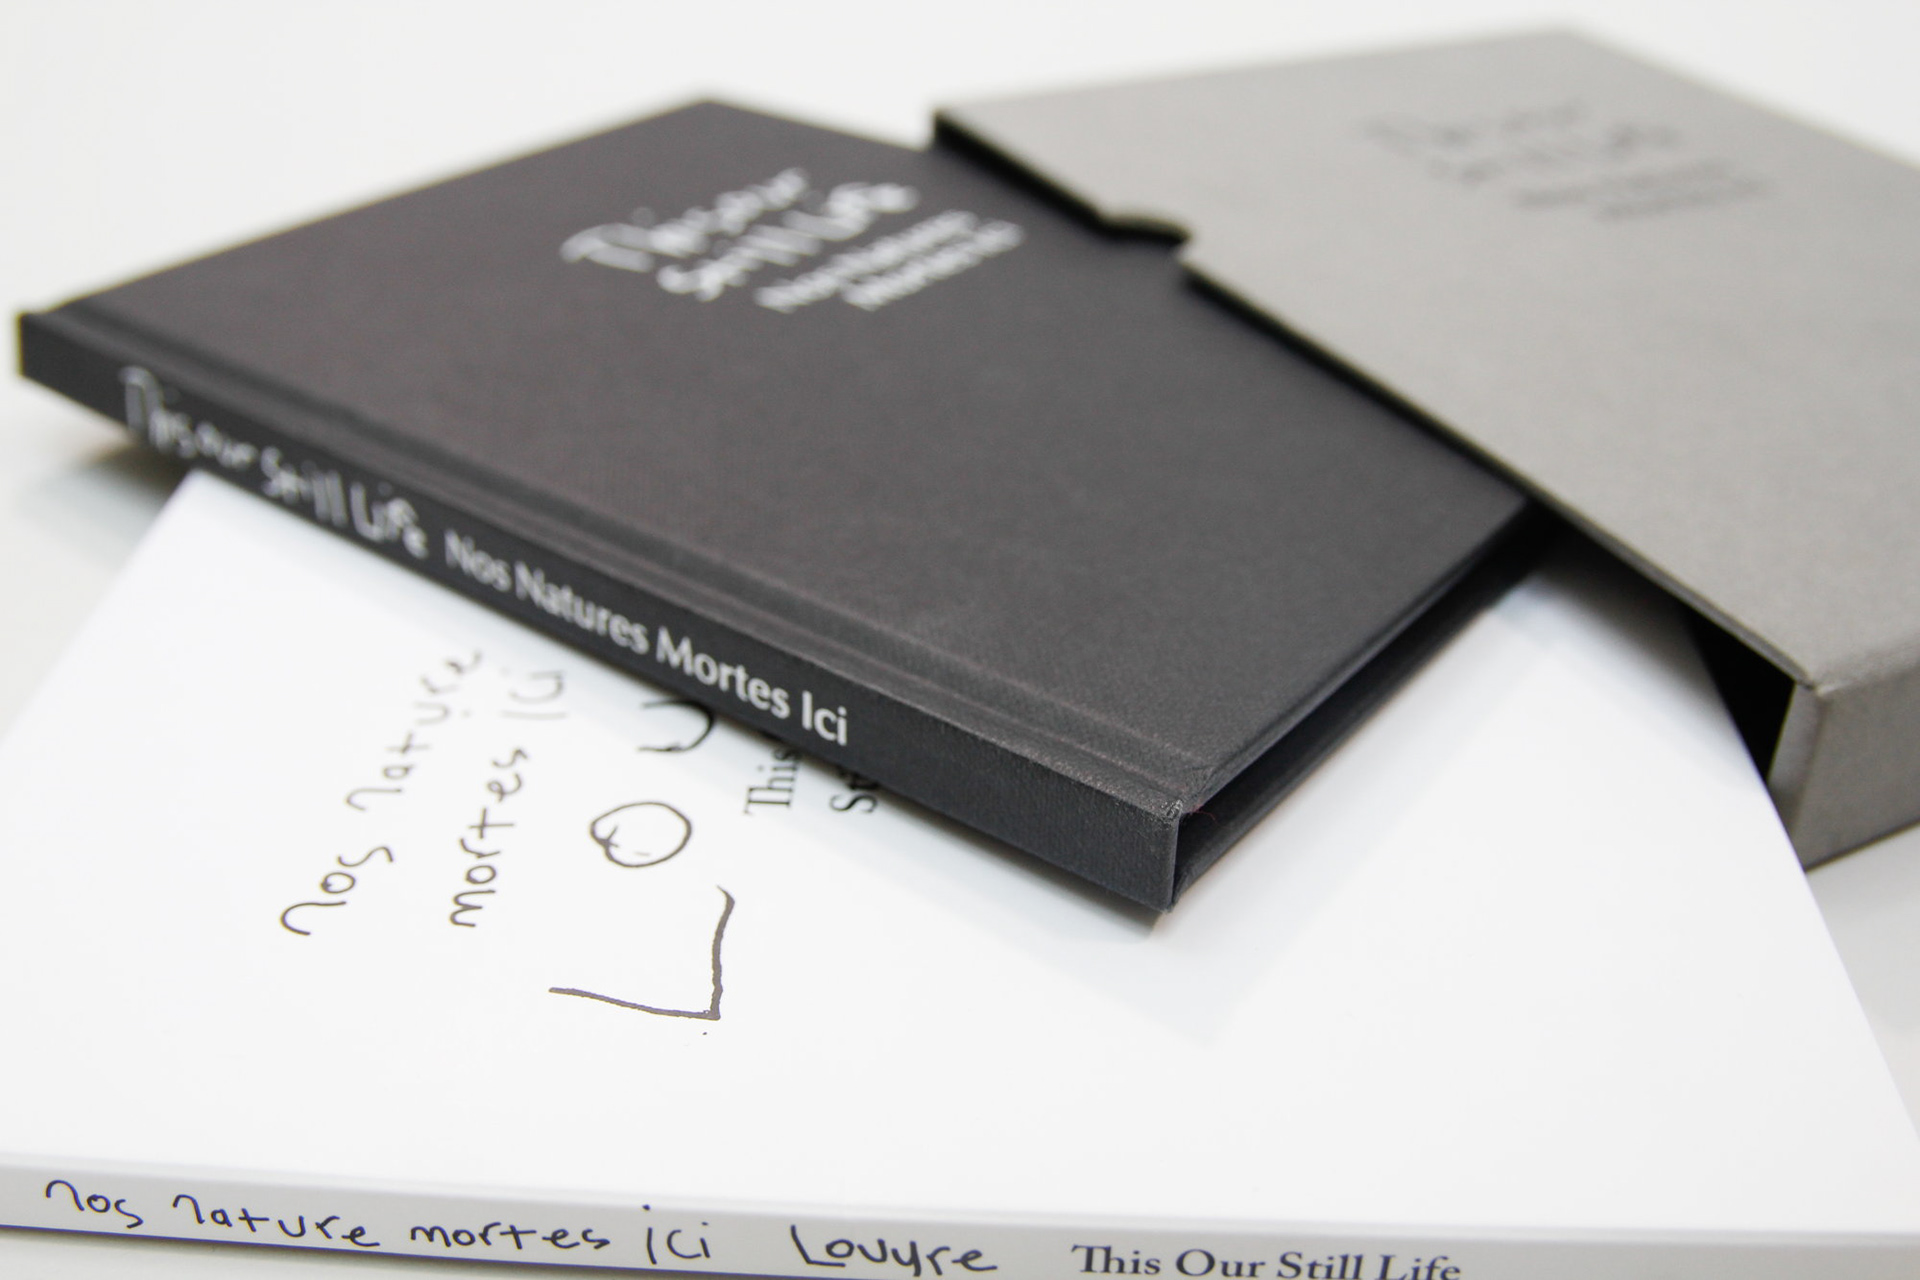 This our
Still Life
Nos Natures
Mortes Ici
This our Still Life Nos Natures Mortes Ici
nos nature
mortes ici
LOU
This
nos nature mortes ici Louyre This Our Still Life